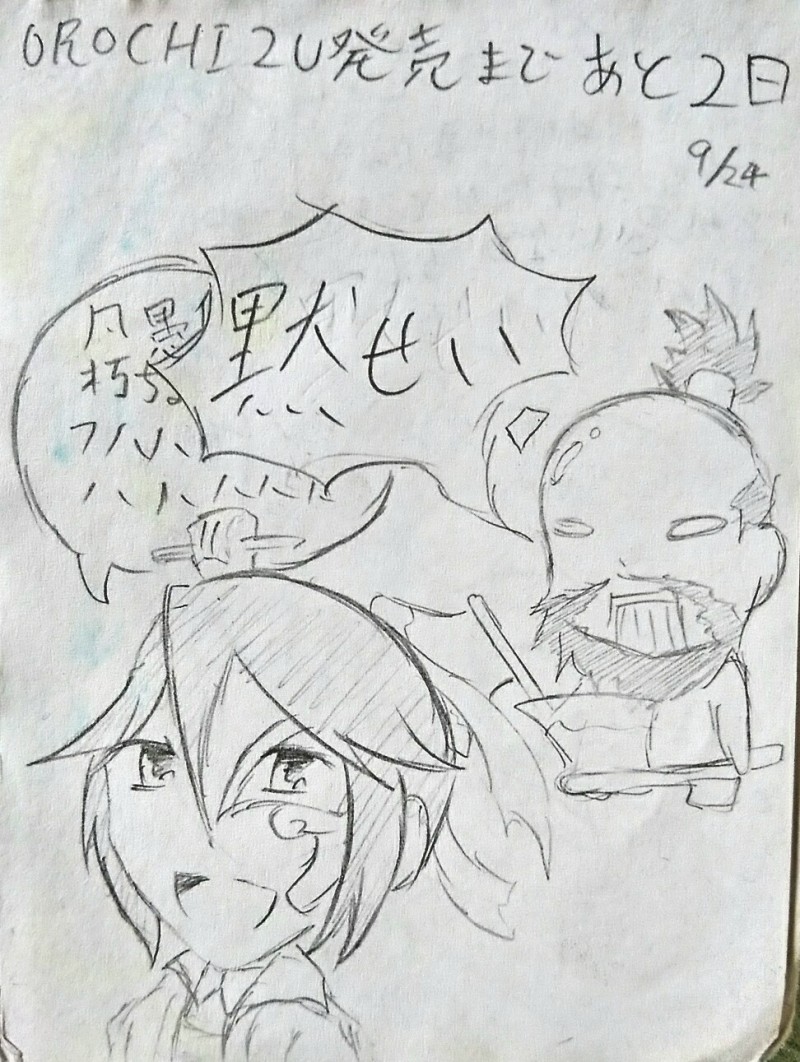 OROCHI2U発売まであと2日
9/24
黙せい
凡愚
朽ち。
フハハ
ハハハハハ